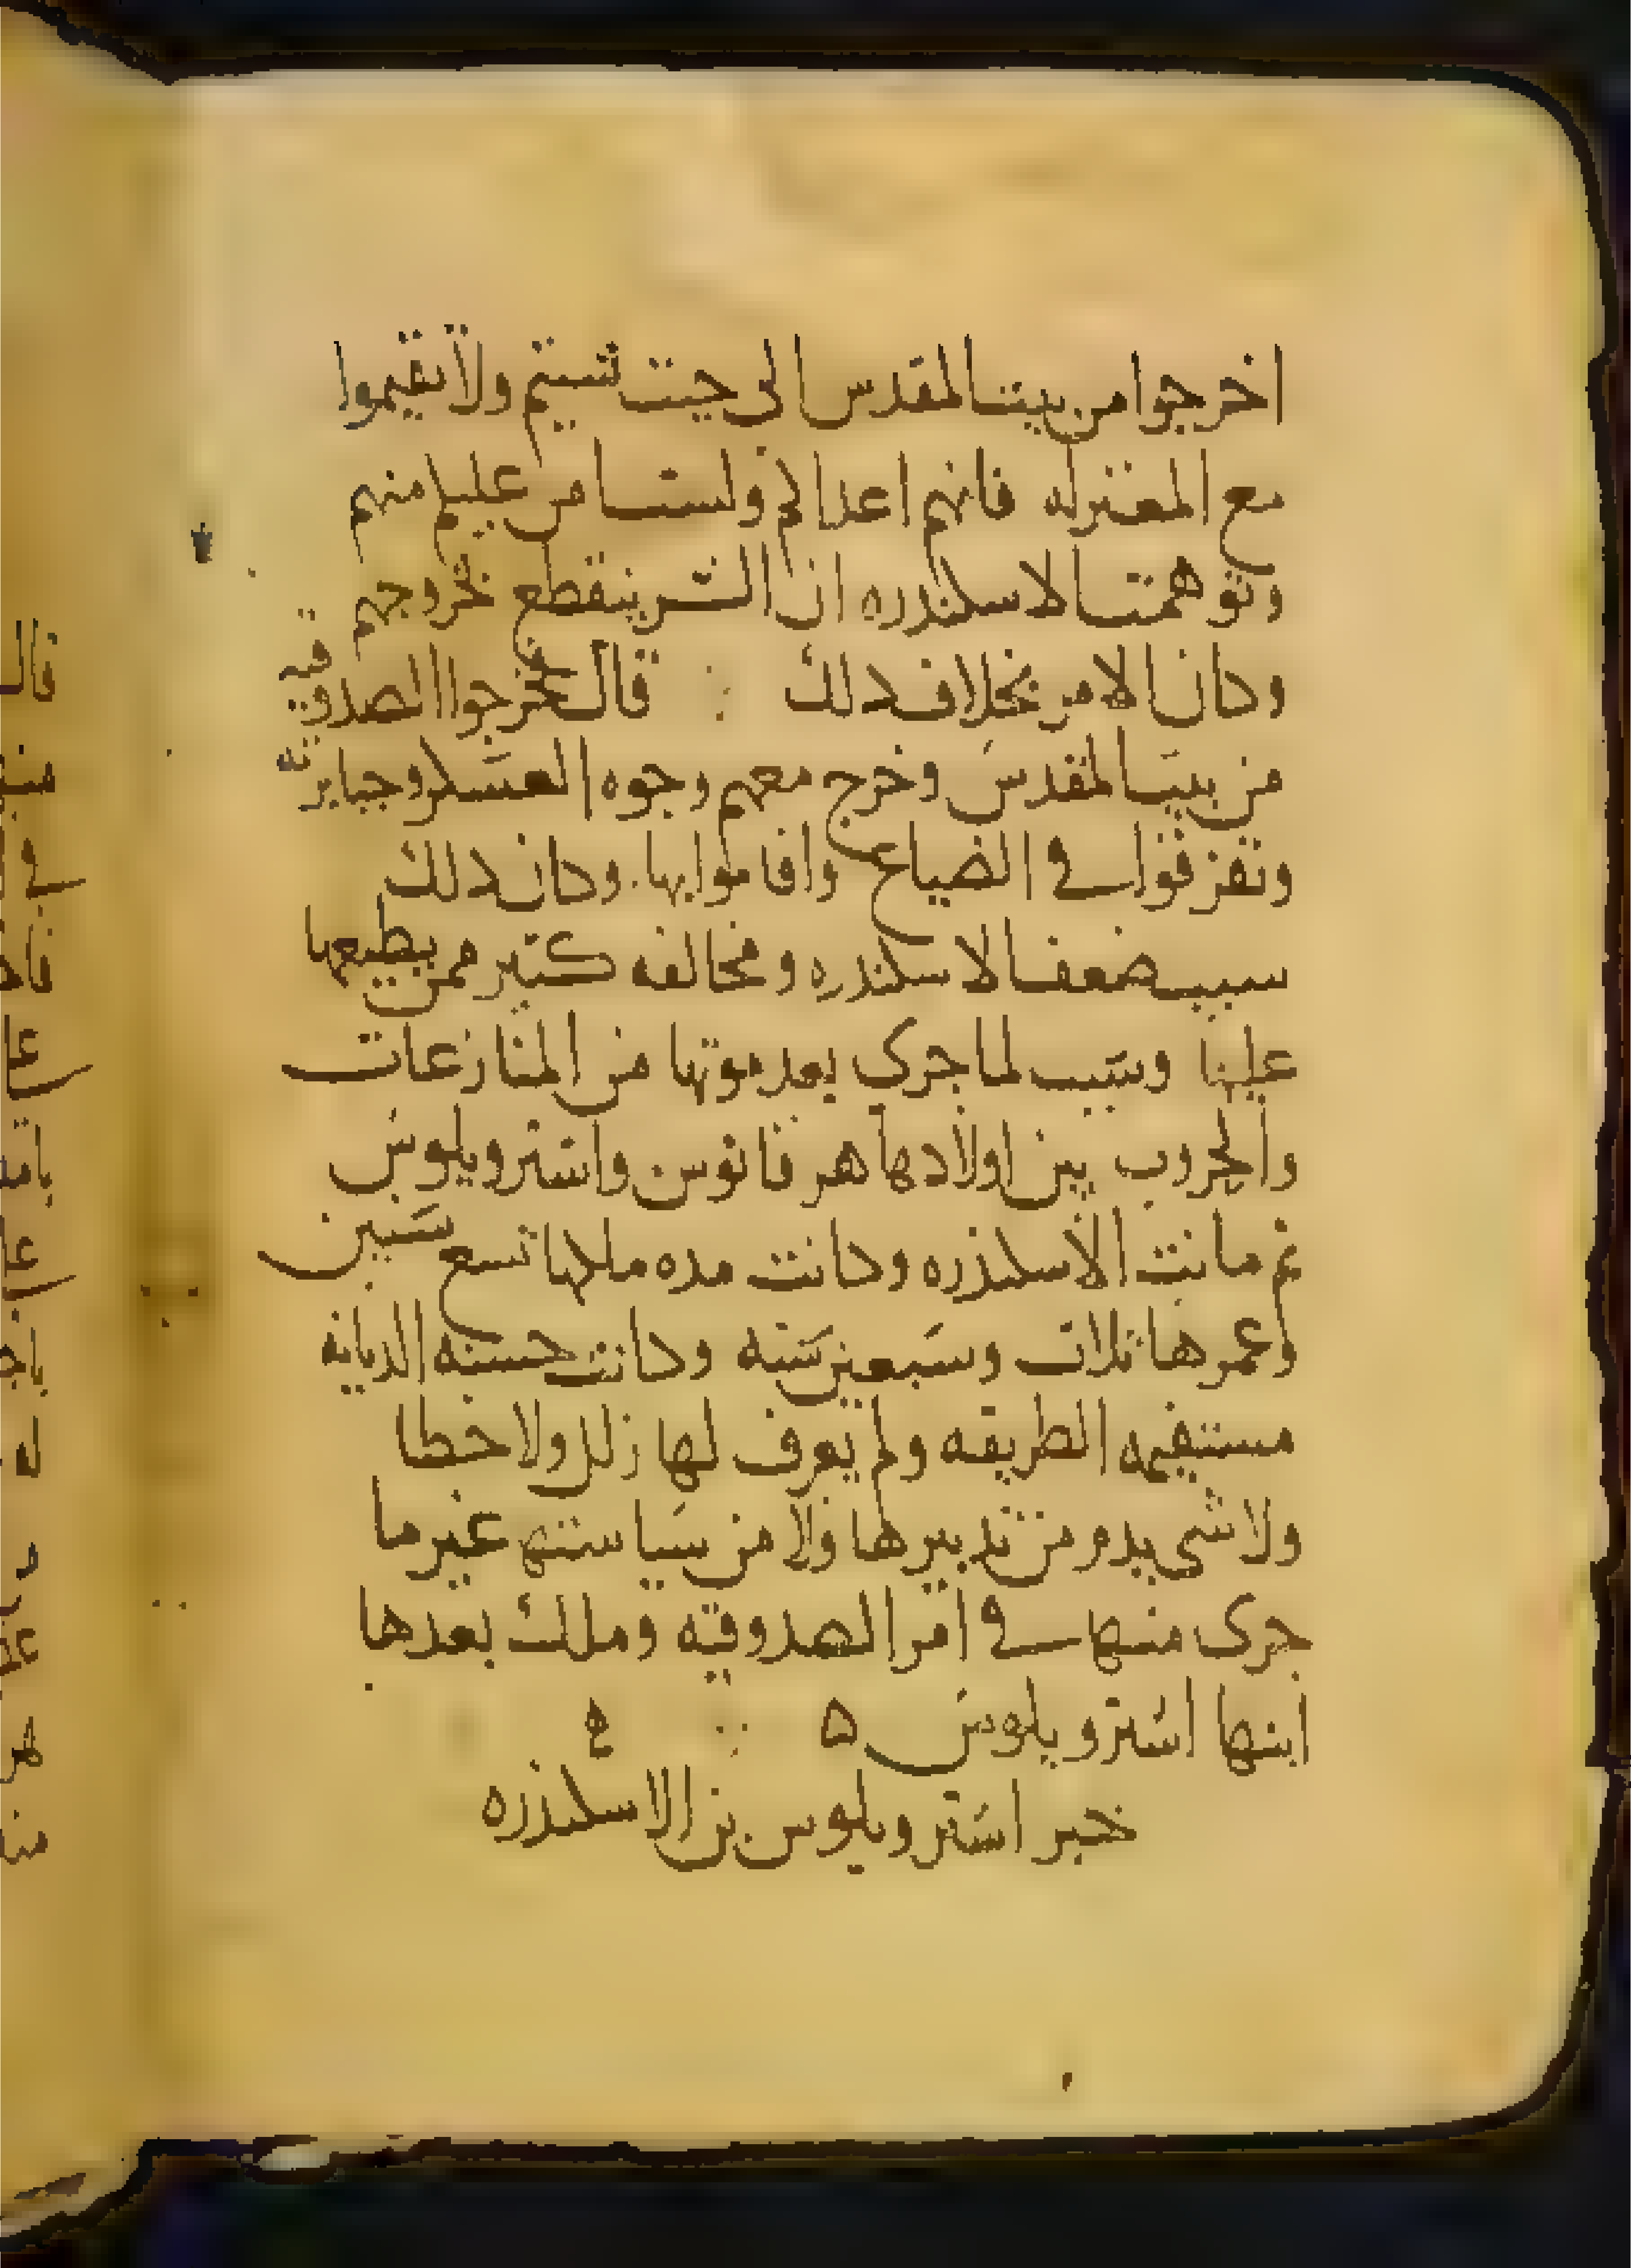 اخرجوا من بيت المقدس الى حيث شيتم ولا تقيموا
مع المعتزله فانهم اعدا لكم ولست امن عليكم منهم
وتوهمت الاسكندره ان الشر ينقطع بخروجهم
وكان الامر بخلاف ذلك قال فخرجوا الصدوقيه
من بيت المقدس وخرج معهم وجوه العسكر وجبابرته
وتفرقوا في الضياع واقاموا بها وكان ذلك
سبب ضعف الاسكندره ومخالفه كثير ممن يطيعها
عليها وسبب لما جرى بعد موتها من المنازعات
والحروب بين اولادها هرقانوس واسترويلوس
ثم ماتت الاسكندره وكانت مده ملكها تسع سنين
وعمرها ثلاث وسبعين سنه وكانت حسنه الديانه
مستقيمه الطريقه ولم يعرف لها زلل ولا خطا
ولا شي يذم من تدبيرها ولا من سياستها غير ما
جرى منها في امر الصدوقيه وملك بعدها
ابنها استرويلوس
خبر استرويلوس بن الاسكندره